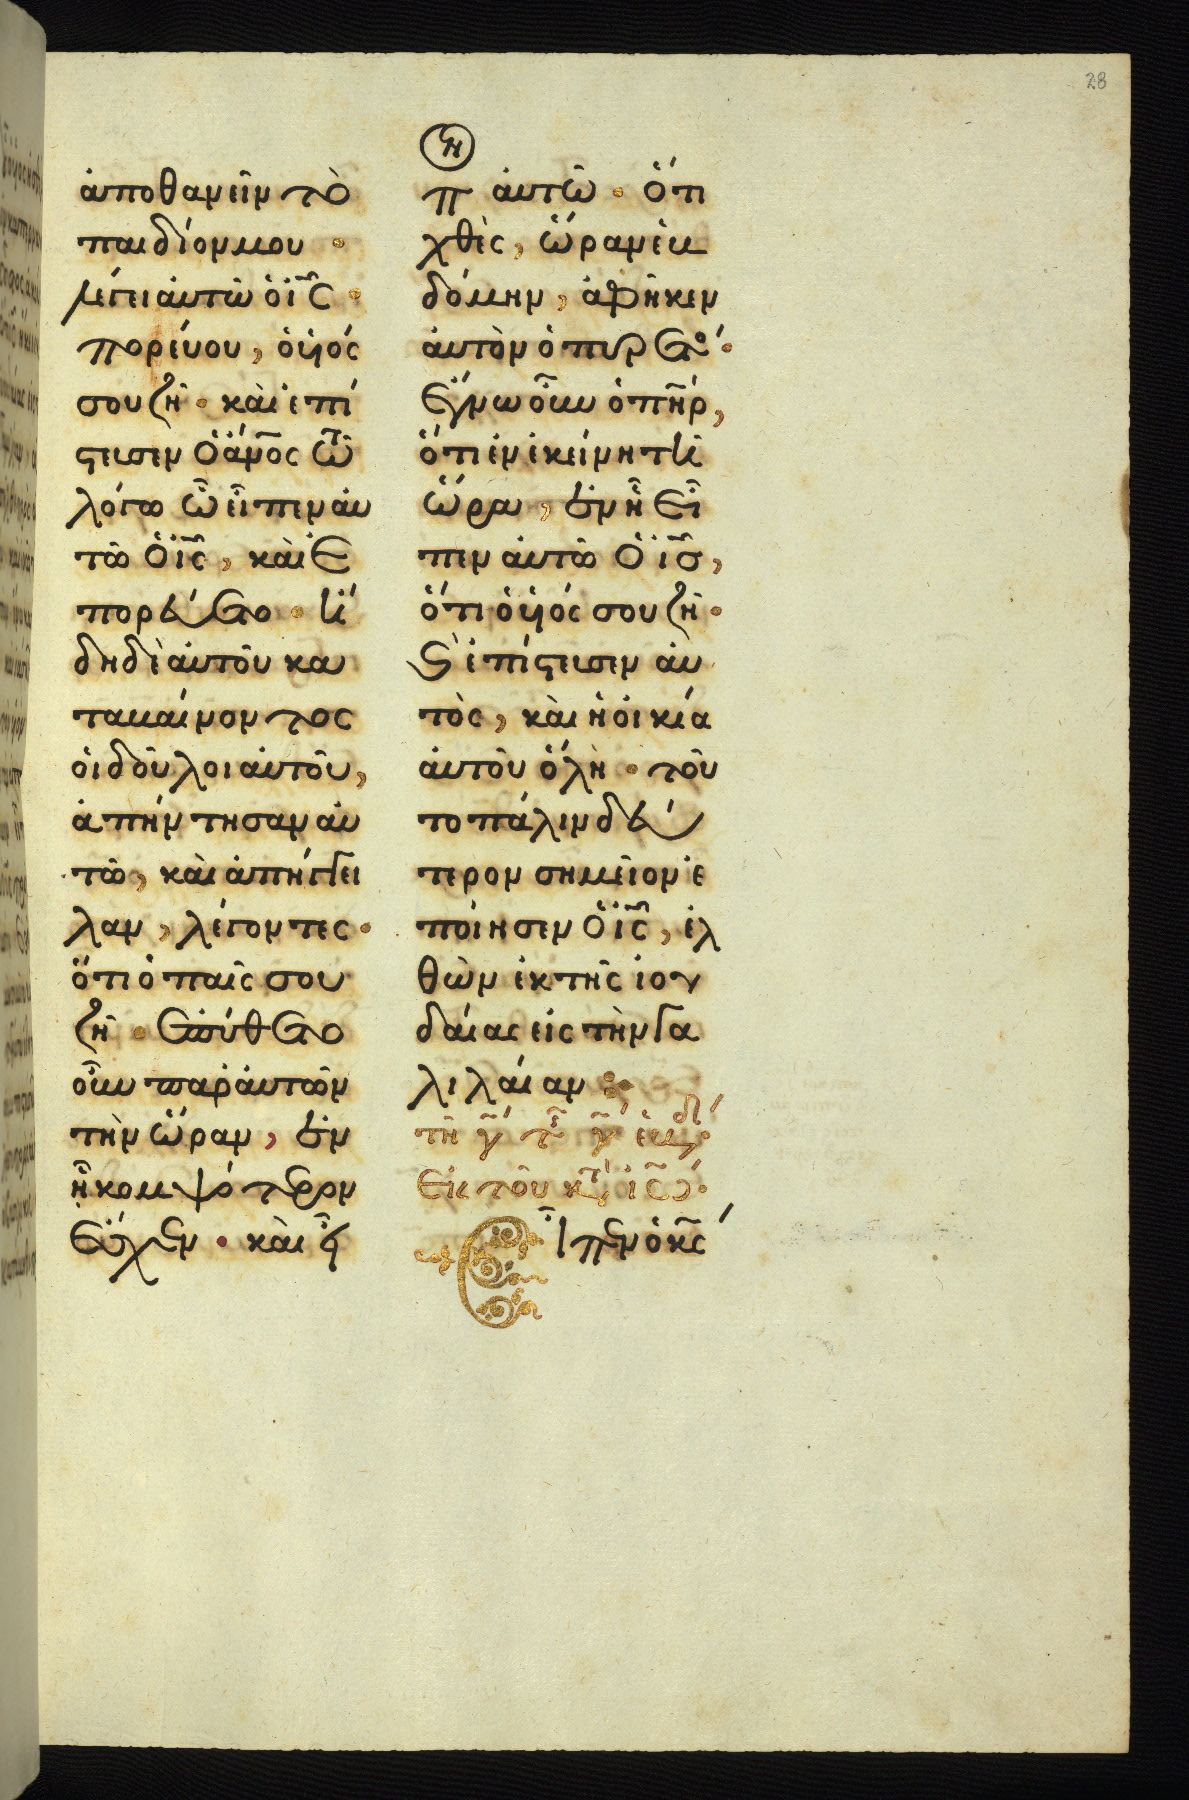 28
ἀποθανεῖν τὸ
παιδίον μου ·
λέγει αὐτῶ ὁ ἰς ·
πορεύου, ὁ υἱός
σου ζῆ · καὶ ἐπί
στευσεν ὁ ἄνος τῶ
λόγω ὧ εἶπεν αὐ
τῶ ὁ ἰς, καὶ ἐ
πορεύετο · ἤ
δη δὲ αὐτοῦ κα
ταβαίνοντος
οἱ δοῦλοι αὐτοῦ,
ἀπήντησαν αὐ
τῶ, καὶ ἀπήγγει
λαν, λέγοντες ·
ὅτι ὁ παῖς σου
ζῆ · ἐπύθετο
οὖν παρ αὐτῶν
τὴν ὥραν, ἐν
ἧ κομψότερον
ἔσχεν · καὶ εἶ
η
π αὐτῶ · ὅτι
χθὲς, ὥραν ἑβ
δόμην, ἀφῆκεν
αὐτὸν ὁ πυρετός ·
ἔγνω οὖν ὁ πηρ,
ὅτι ἐν ἐκείνη τῆ
ὥρα, ἐν ἧ εἶ
πεν αὐτῶ ὁ ἰς,
ὅτι ὁ υἱός σου ζῆ ·
κὲ ἐπίστευσεν αὐ
τὸς, καὶ ἡ οἰκία
αὐτοῦ ὅλη · τοῦ
το πάλιν δεύ
τερον σημεῖον ἐ
ποίησεν ὁ ἰς, ἐλ
θὼν ἐκ τῆς ἰου
δαίας εἰς τὴν γα
λιλαίαν :·
τῆ γ τῆς γ ἑβδ ·
Ἐκ τοῦ κτ ἰω ·
Εἶπεν ὁ κς